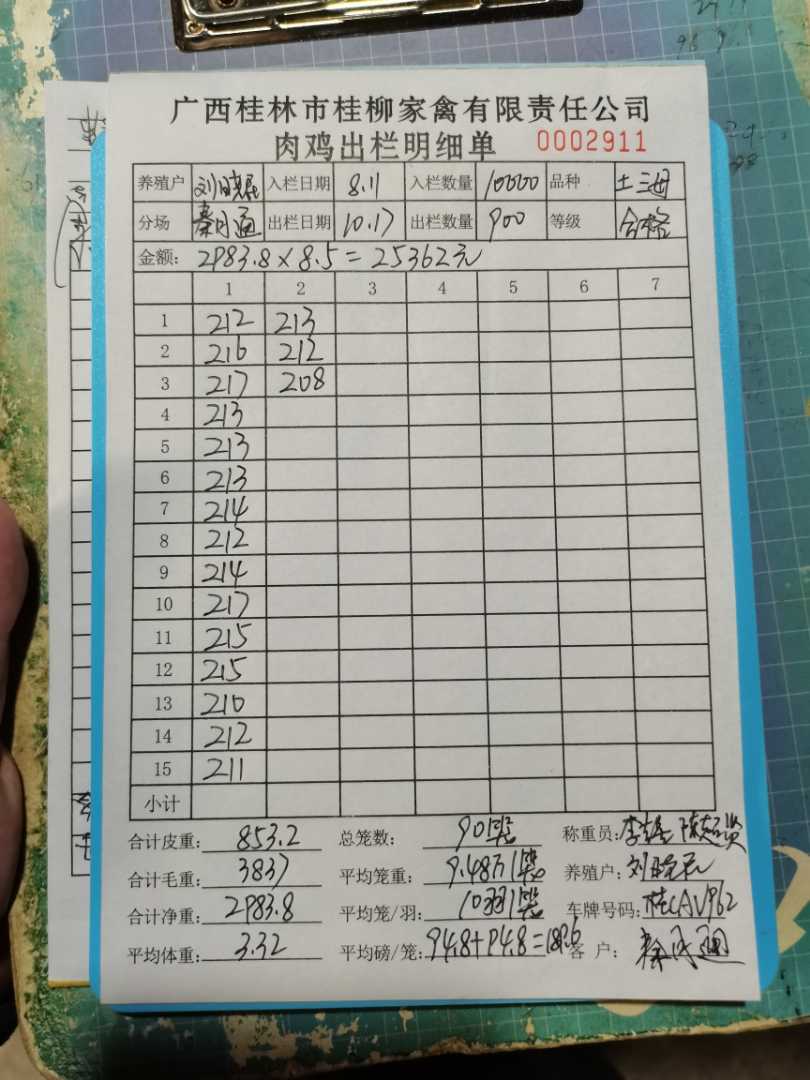 广西桂林市桂柳家禽有限责任公司
肉鸡出栏明细单 0002911
养殖户 入栏日期 8.11 入栏数量 10000 品种 土三母
分场 出栏日期 10.17 出栏数量 900 等级 合格
金额: 2983.8×8.5=25362元
1 2 3 4 5 6 7
1 212 213
2 216 212
3 217 208
4 213
5 213
6 213
7 214
8 212
9 214
10 217
11 215
12 215
13 210
14 212
15 211
小计
合计皮重: 853.2 总笼数: 90 称重员:
合计毛重: 3837 平均笼重: 9.48 养殖户:
合计净重: 2983.8 平均笼/羽: 10羽 车牌号码: 桂CAV962
平均体重: 3.32 平均磅/笼: 94.8+94.8=189.6 客 户: